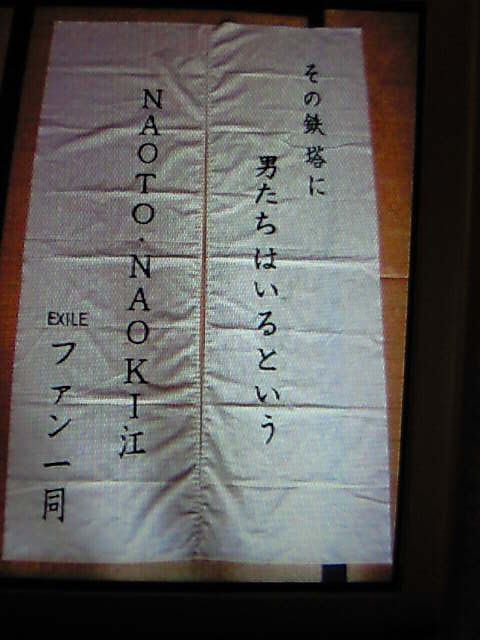 その鉄塔に
男たちはいるという
NAOTO・NAOKI江
EXILE
ファン一同